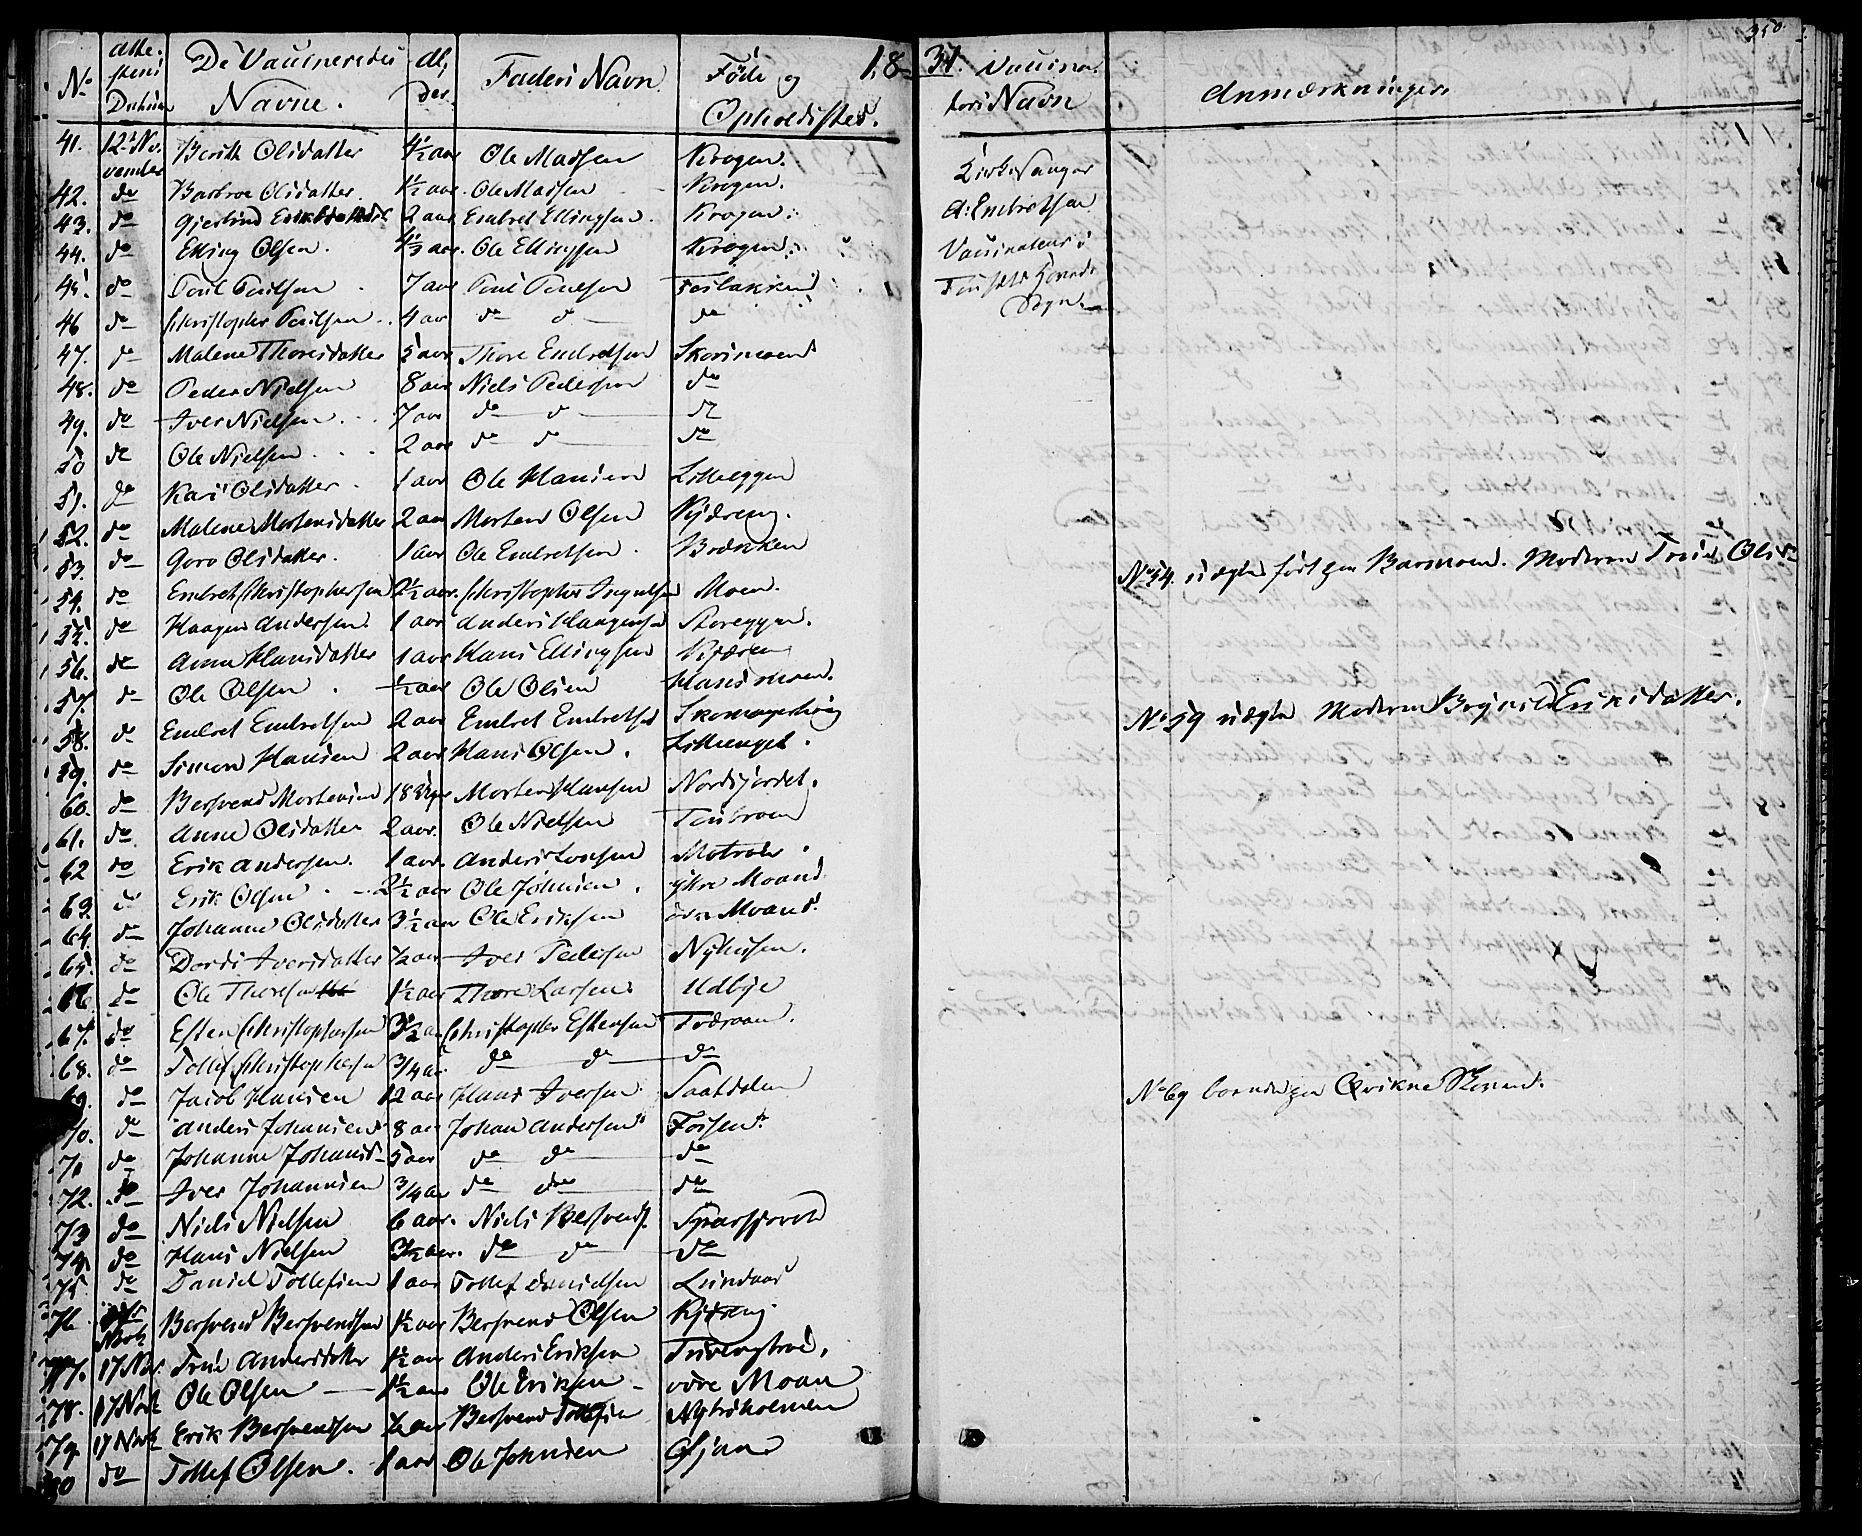 350.
No Atte-stens Datum De Vaccineredes Navne. Al-der. Faders Navn Føde og Opholdssted. 1831. Vaccina-teurs Navn Anmærkninger
41. 12te No-vember Berith Olsdatter 4½ aar Ole Madsen Krogen. Kirkesanger
42. do Barbroe Olsdatter 1½ aar. Ole Madsen Krogen. A: Embretsen
43. do Gjertrud 2 aar Embret Ellingsen. Krogen. Vaccinateur i
44. do Elling Olsen. aar. Ole Ellingsen Krogen. Tønsets Hoved-
45. do Poul Poulsen 7 aar Poul Poulsen Sogn.
46 do Christopher Poulsen 4 aar do do do
47. do Malene Thoresdatter 5 aar Thore Embretsen Skorimoen
48. do Peder Nielsen 8 aar Niels Pedersen do
49. do Iver Nielsen 7 aar do do do
50 do Ole Nielsen 2 aar do do do
51. do Kari Olsdatter 1 aar Ole Hansen Lilleeggen
52. do Malene Mortensdatter 2 aar Morten Olsen Kjæreng.
53. do Goro Olsdatter. 1 aar Ole Embretsen. Brækken
54. do Embret Christophersen 2½ aar. Christopher Moen. No 54. uægte født paa Moderen Olsd
55. do Haagen Andersen 1 aar Anders Haagensen Storeggen.
56. do Anne Hansdatter 1 aar Hans Ellingsen Kjæreng
57. do Ole Olsen ½ aar Ole Olsen Hansmoen.
58. do Embret Embretsen 2 aar Embret Embretsen No 59 uægte Moderen Eriksdatter.
59. do Simon Hansen 2 aar Hans Olsen. Lilleenget.
60. do Bersvend Mortensen Morten Hansen Nordsjordet.
61. do Anne Olsdatter 2 aar. Ole Nielsen
62 do Erik Andersen. 1 aar. Anders Jonsen
63. do Erik Olsen 2½ aar Ole Johnsen. ytre Moand
64. do Johanne Olsdatter 3½ aar Ole Eriksen øvre Moand.
65. do Dordi Iversdatter ½ aar Iver Pedersen Nyhusen.
66. do Ole Thoresen 1½ aar Thore Larsen Udbye
67. do Esten Christophersen 3½ aar Christopher Estensen Tværaan.
68. do Tollef Christophersen ¾ aar do do do
69. do Jacob Hansen 12 aar Hans Iversen Saatdalen No 69 paa Qvikne
70. do Anders Johansen 8 aar Johan Andersen Fossen
71 do Johanne Johansd 5 aar do do do
72. do Iver Johannsen ¾ aar do do do
73 do Niels Nielsen 6 aar. Niels Bersvends.
74. do Hans Nielsen 3½ aar. do do do
75 do Daniel Tollefsen 1 aar Tollef Danielsen
76. Bersvend Bersvendsen 1½ aar Bersvend Olsen Kjæreng.
77. 17 Nov. Andersdatter 1½ aar Anders Eriksen
78. 17 Novb Ole Olsen 1½ aar Ole Eriksen øvre Moan
79 17 Novb Erik Bersvendsen ½ aar Bersvend Tollefsen
80 do Tollef Olsen. 1 aar Ole Johnsen